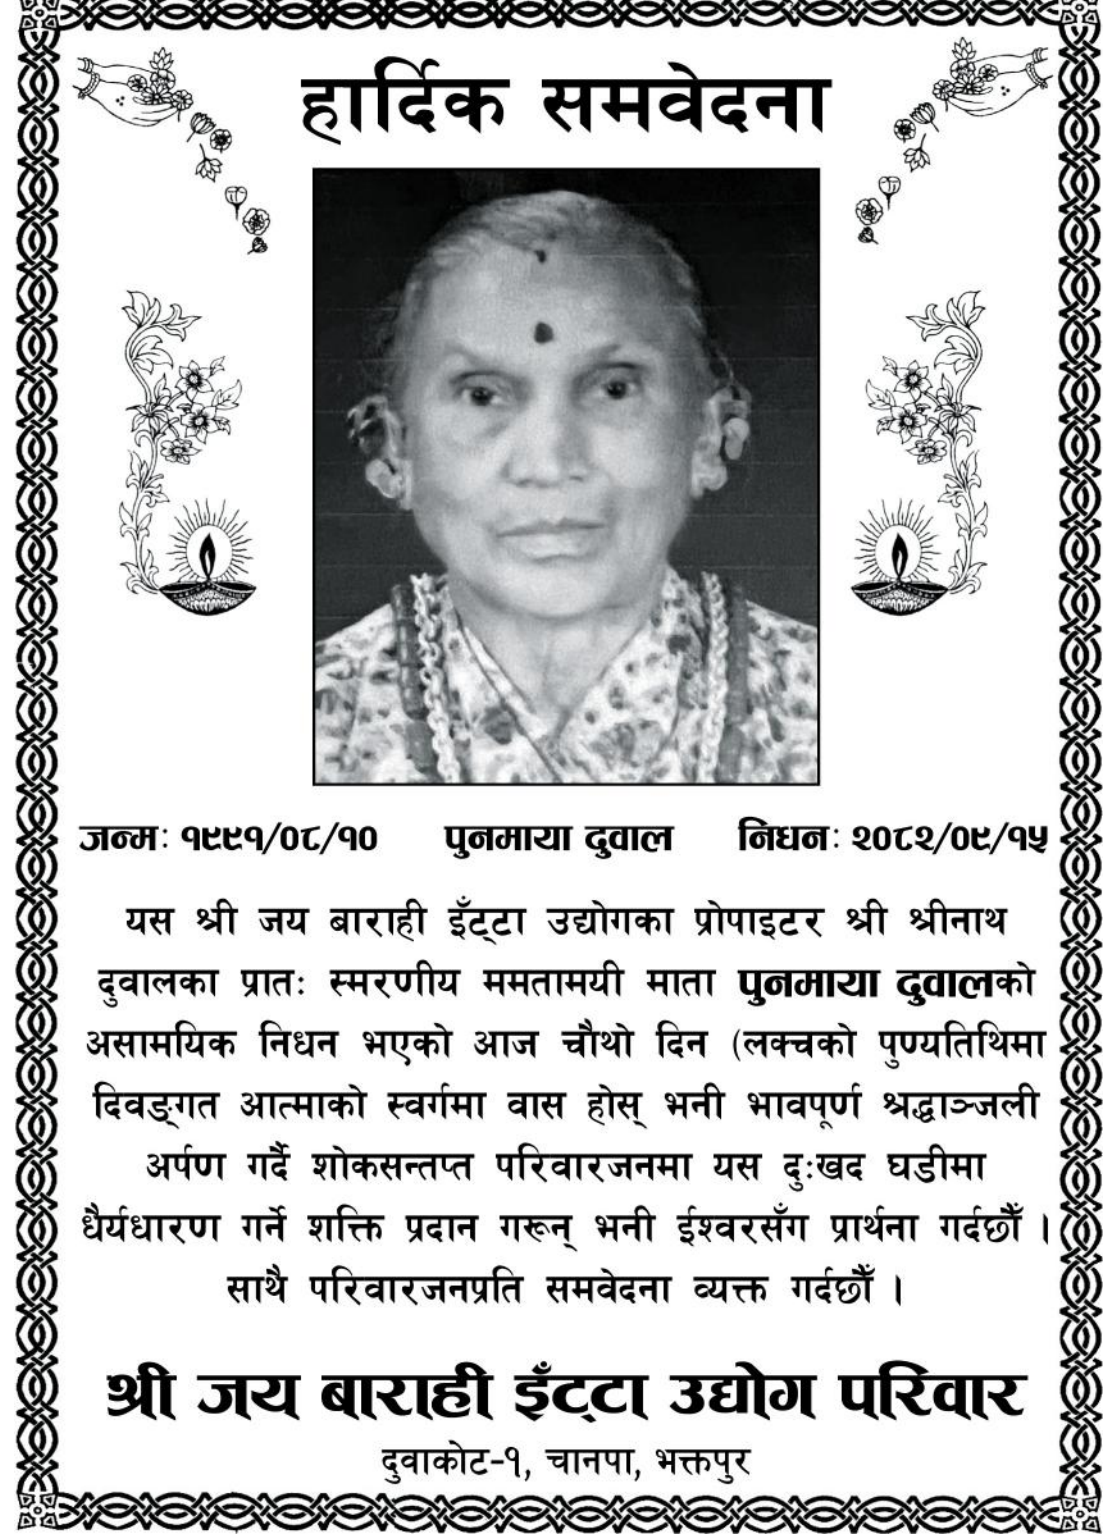 हार्दिक समवेदना
जन्म: १९९१/०८/१० पुनमाया दुवाल निधन: २०८२/०९/१५
यस श्री जय बाराही इँट्टा उद्योगका प्रोपाइटर श्री श्रीनाथ
दुवालका प्रातः स्मरणीय ममतामयी माता पुनमाया दुवालको
असामयिक निधन भएको आज चौथो दिन (लक्चको पुण्यतिथिमा
दिवङ्गत आत्माको स्वर्गमा वास होस् भनी भावपूर्ण श्रद्धाञ्जली
अर्पण गर्दै शोकसन्तप्त परिवारजनमा यस दुःखद घडीमा
धैर्यधारण गर्ने शक्ति प्रदान गरून् भनी ईश्वरसँग प्रार्थना गर्दछौँ ।
साथै परिवारजनप्रति समवेदना व्यक्त गर्दछौँ ।
श्री जय बाराही इँट्टा उद्योग परिवार
दुवाकोट-१, चानपा, भक्तपुर